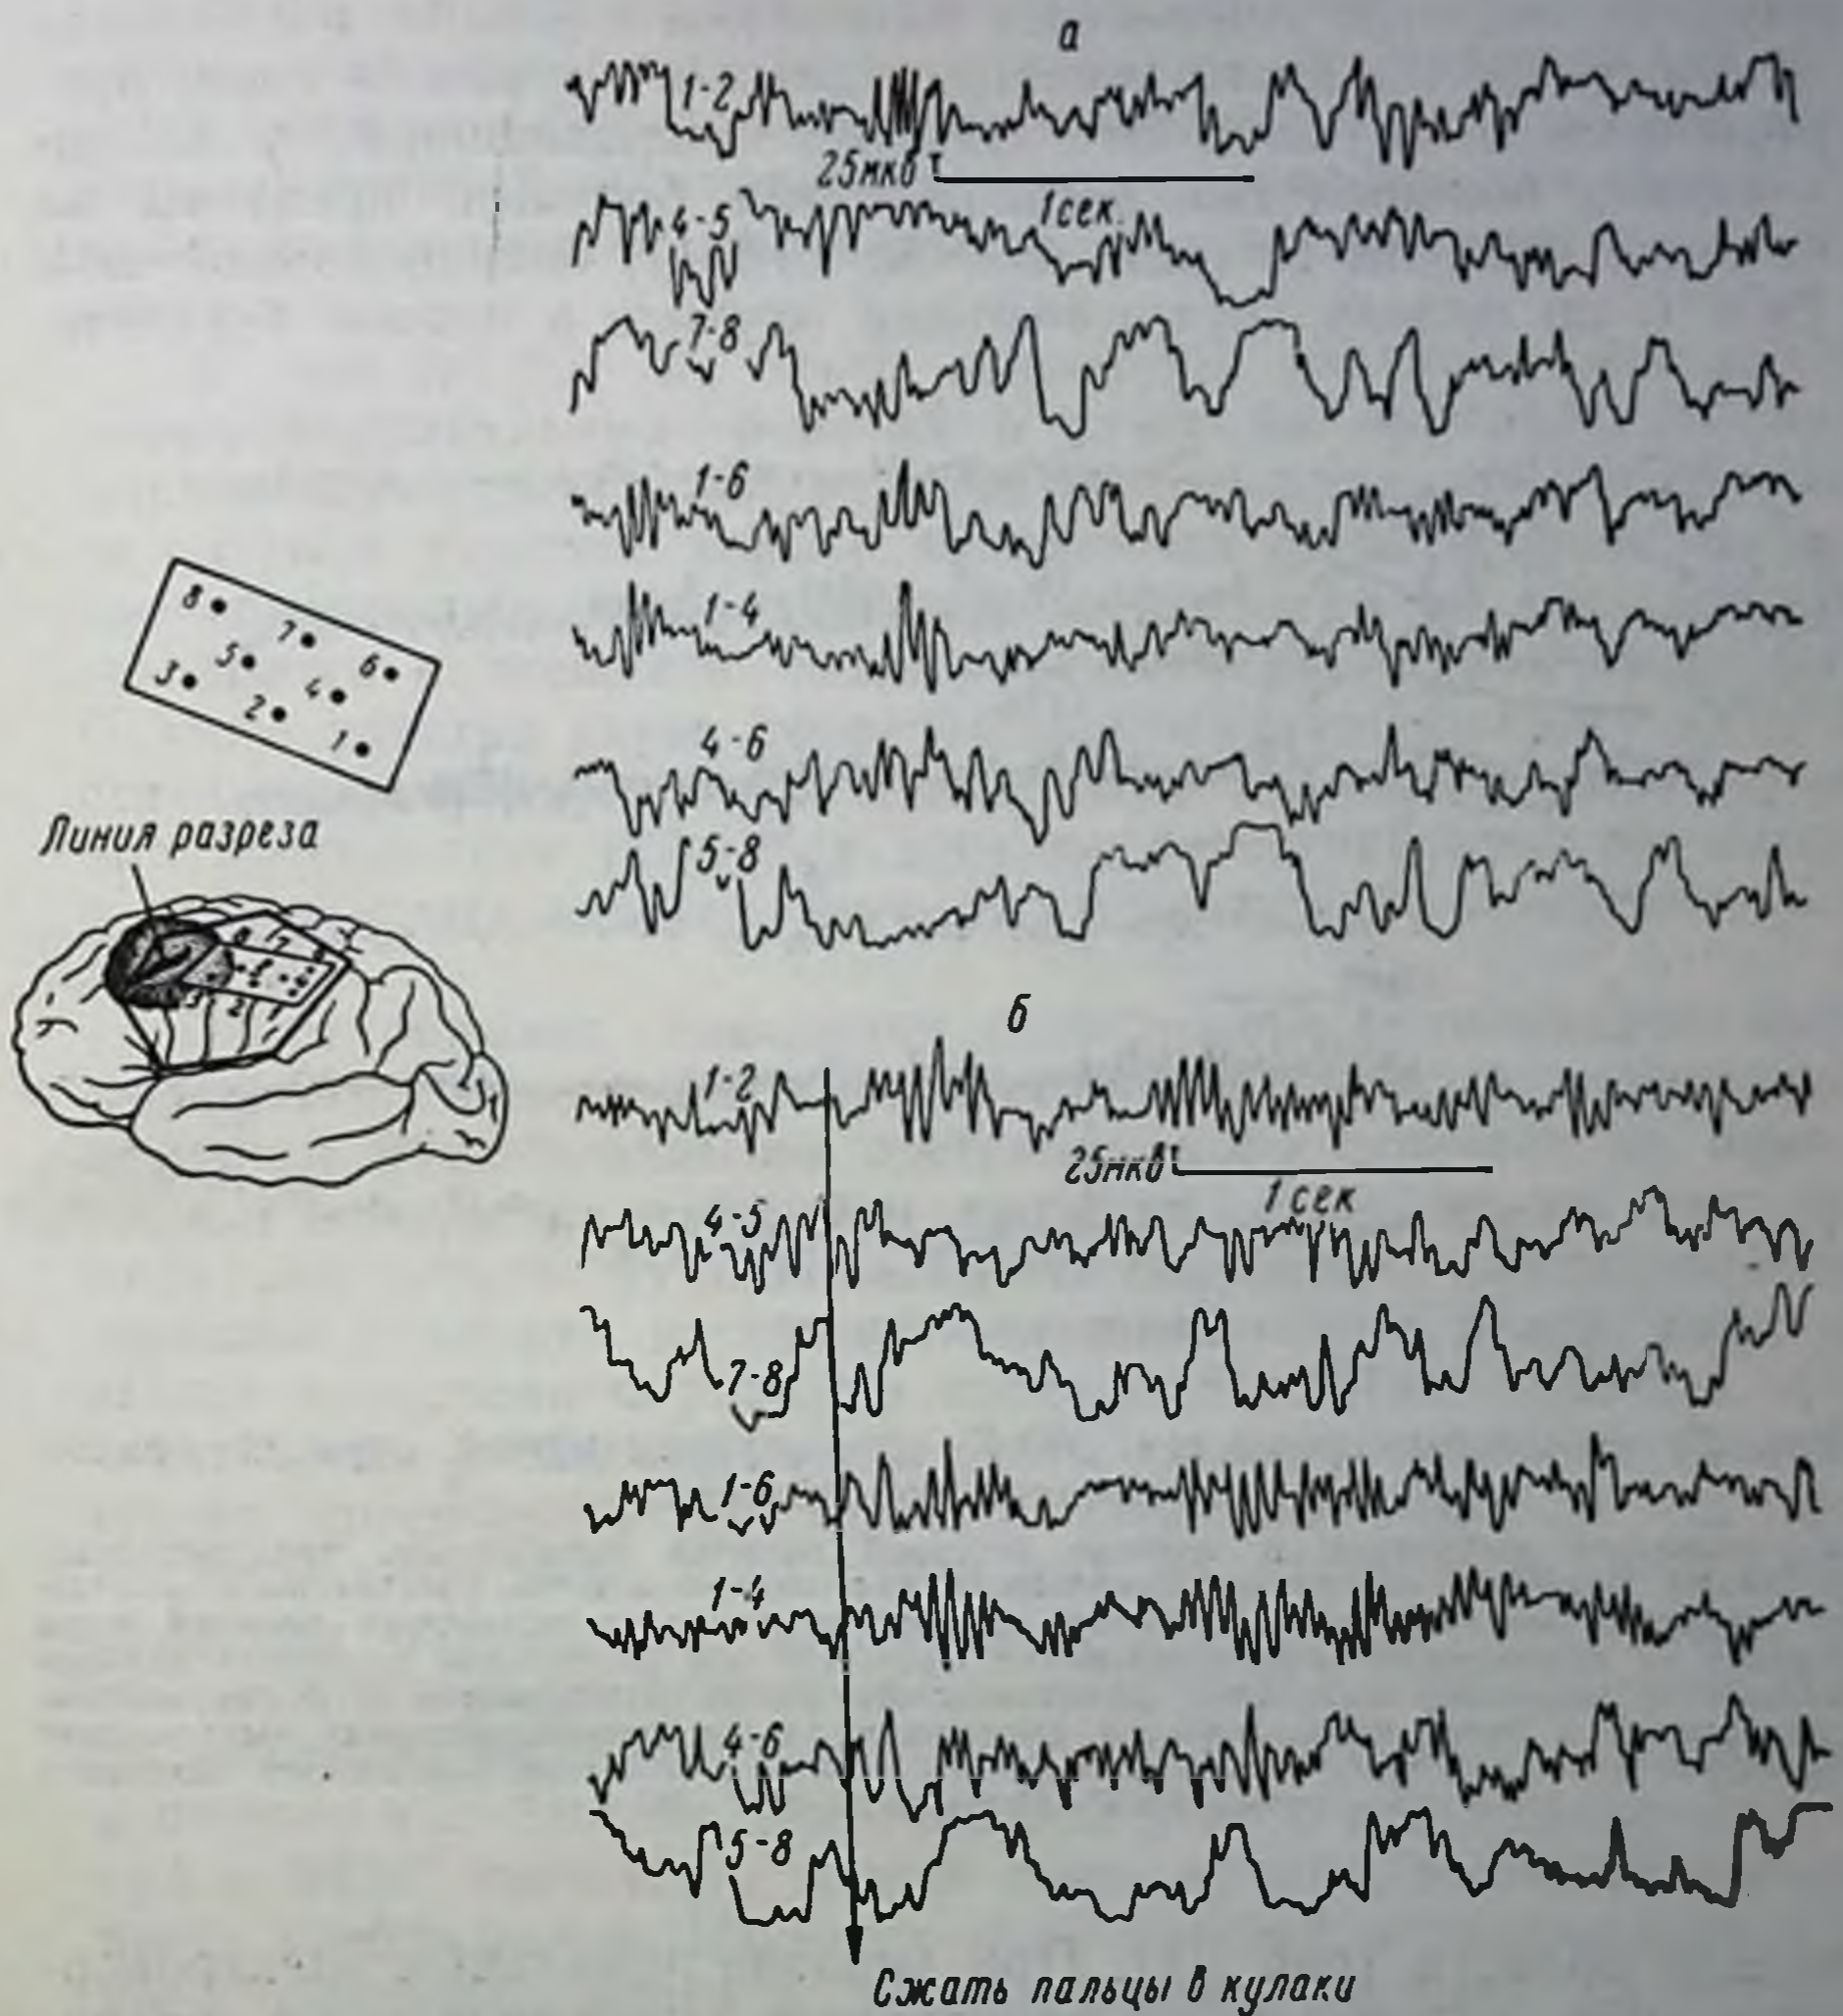 а
1-2
25мкв
1 сек.
4-5
7-8
1-6
1-4
4-6
5-8
8
7
6
5
4
3
2
1
Линия разреза
б
1-2
25мкв
1 сек
4-5
7-8
1-6
1-4
4-6
5-8
Сжать пальцы в кулаки